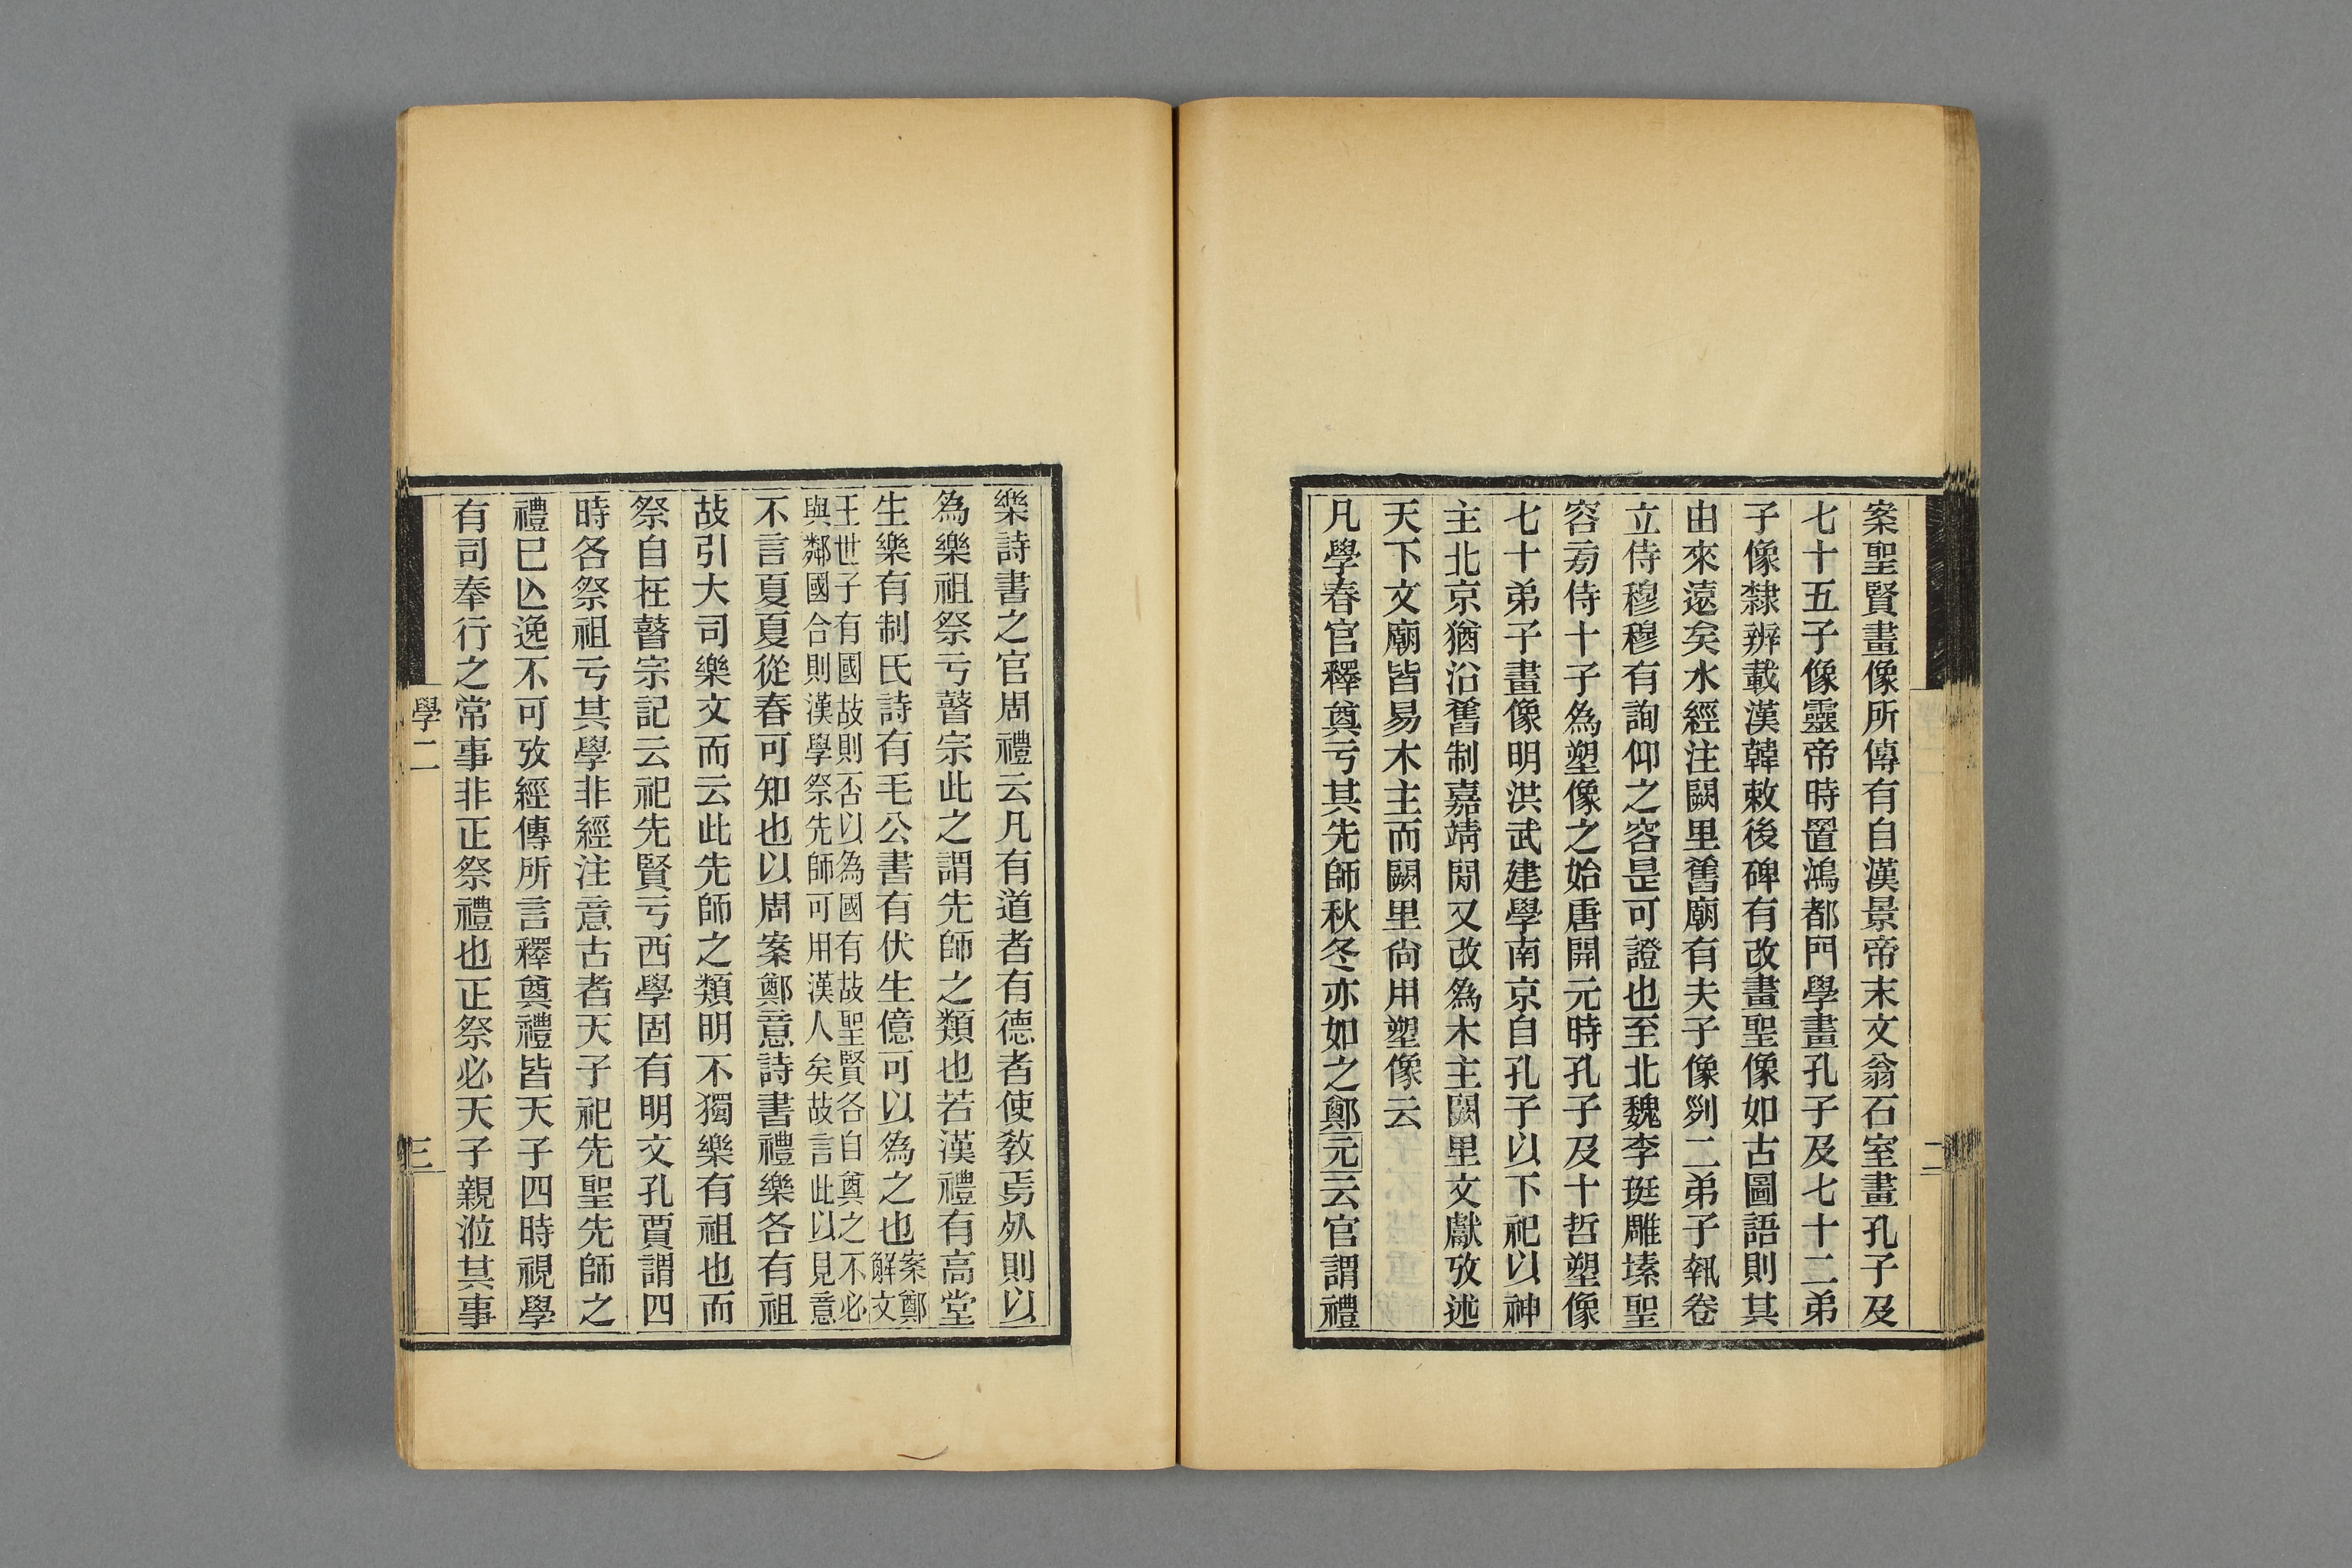 案聖賢畫像所傳有自漢景帝末文翁石室畫孔子及
七十五子像靈帝時置鴻都門學畫孔子及七十二弟
子像隸辨載漢韓敕後碑有改畫聖像如古圖語則其
由來遠矣水經注闕里舊廟有夫子像𠛱二弟子執卷
立侍穆穆有詢仰之容是可證也至北魏李珽雕塐聖
容㫄侍十子為塑像之始唐開元時孔子及十哲塑像
七十弟子畫像明洪武建學南京自孔子以下祀以神
主北京猶沿舊制嘉靖閒又改為木主闕里文獻攷述
天下文廟皆易木主而闕里尙用塑像云
凡學春官釋奠亏其先師秋冬亦如之鄭元云官謂禮
二
樂詩書之官周禮云凡有道者有德者使敎焉𣦸則以
為樂祖祭亏瞽宗此之謂先師之類也若漢禮有高堂
生樂有制氏詩有毛公書有伏生億可以為之也案鄭解文
王世子有國故則否以為國有故聖賢各自奠之不必
與鄰國合則漢學祭先師可用漢人矣故言此以見意
不言夏夏從春可知也以周案鄭意詩書禮樂各有祖
故引大司樂文而云此先師之類明不獨樂有祖也而
祭自在瞽宗記云祀先賢亏西學固有明文孔賈謂四
時各祭祖亏其學非經注意古者天子祀先聖先師之
禮巳亾逸不可攷經傳所言釋奠禮皆天子四時視學
有司奉行之常事非正祭禮也正祭必天子親涖其事
學二
三